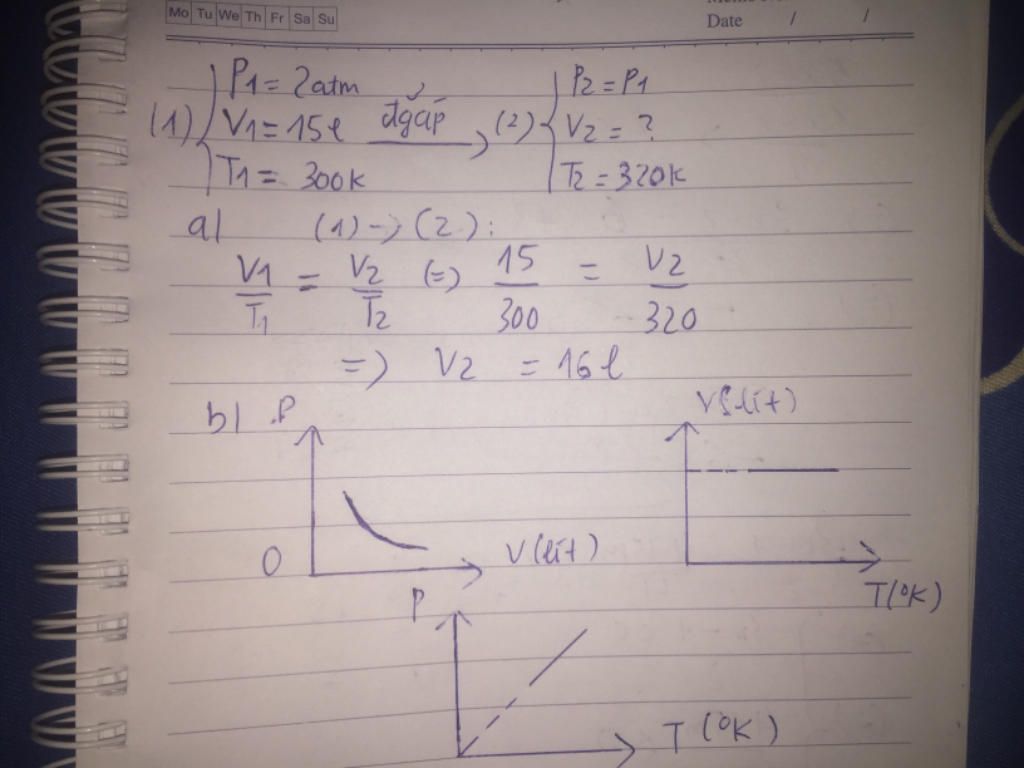 Mo Tu We Th Fr Sa Su
Date / /
(1) P1 = 2atm
V1 = 15l
T1 = 300k
đgáp
(2) P2 = P1
V2 = ?
T2 = 320k
a) (1) -> (2):
V1/T1 = V2/T2 (=) 15/300 = V2/320
=) V2 = 16l
b) P
O
V(lít)
V(lít)
T(°K)
P
T(°K)